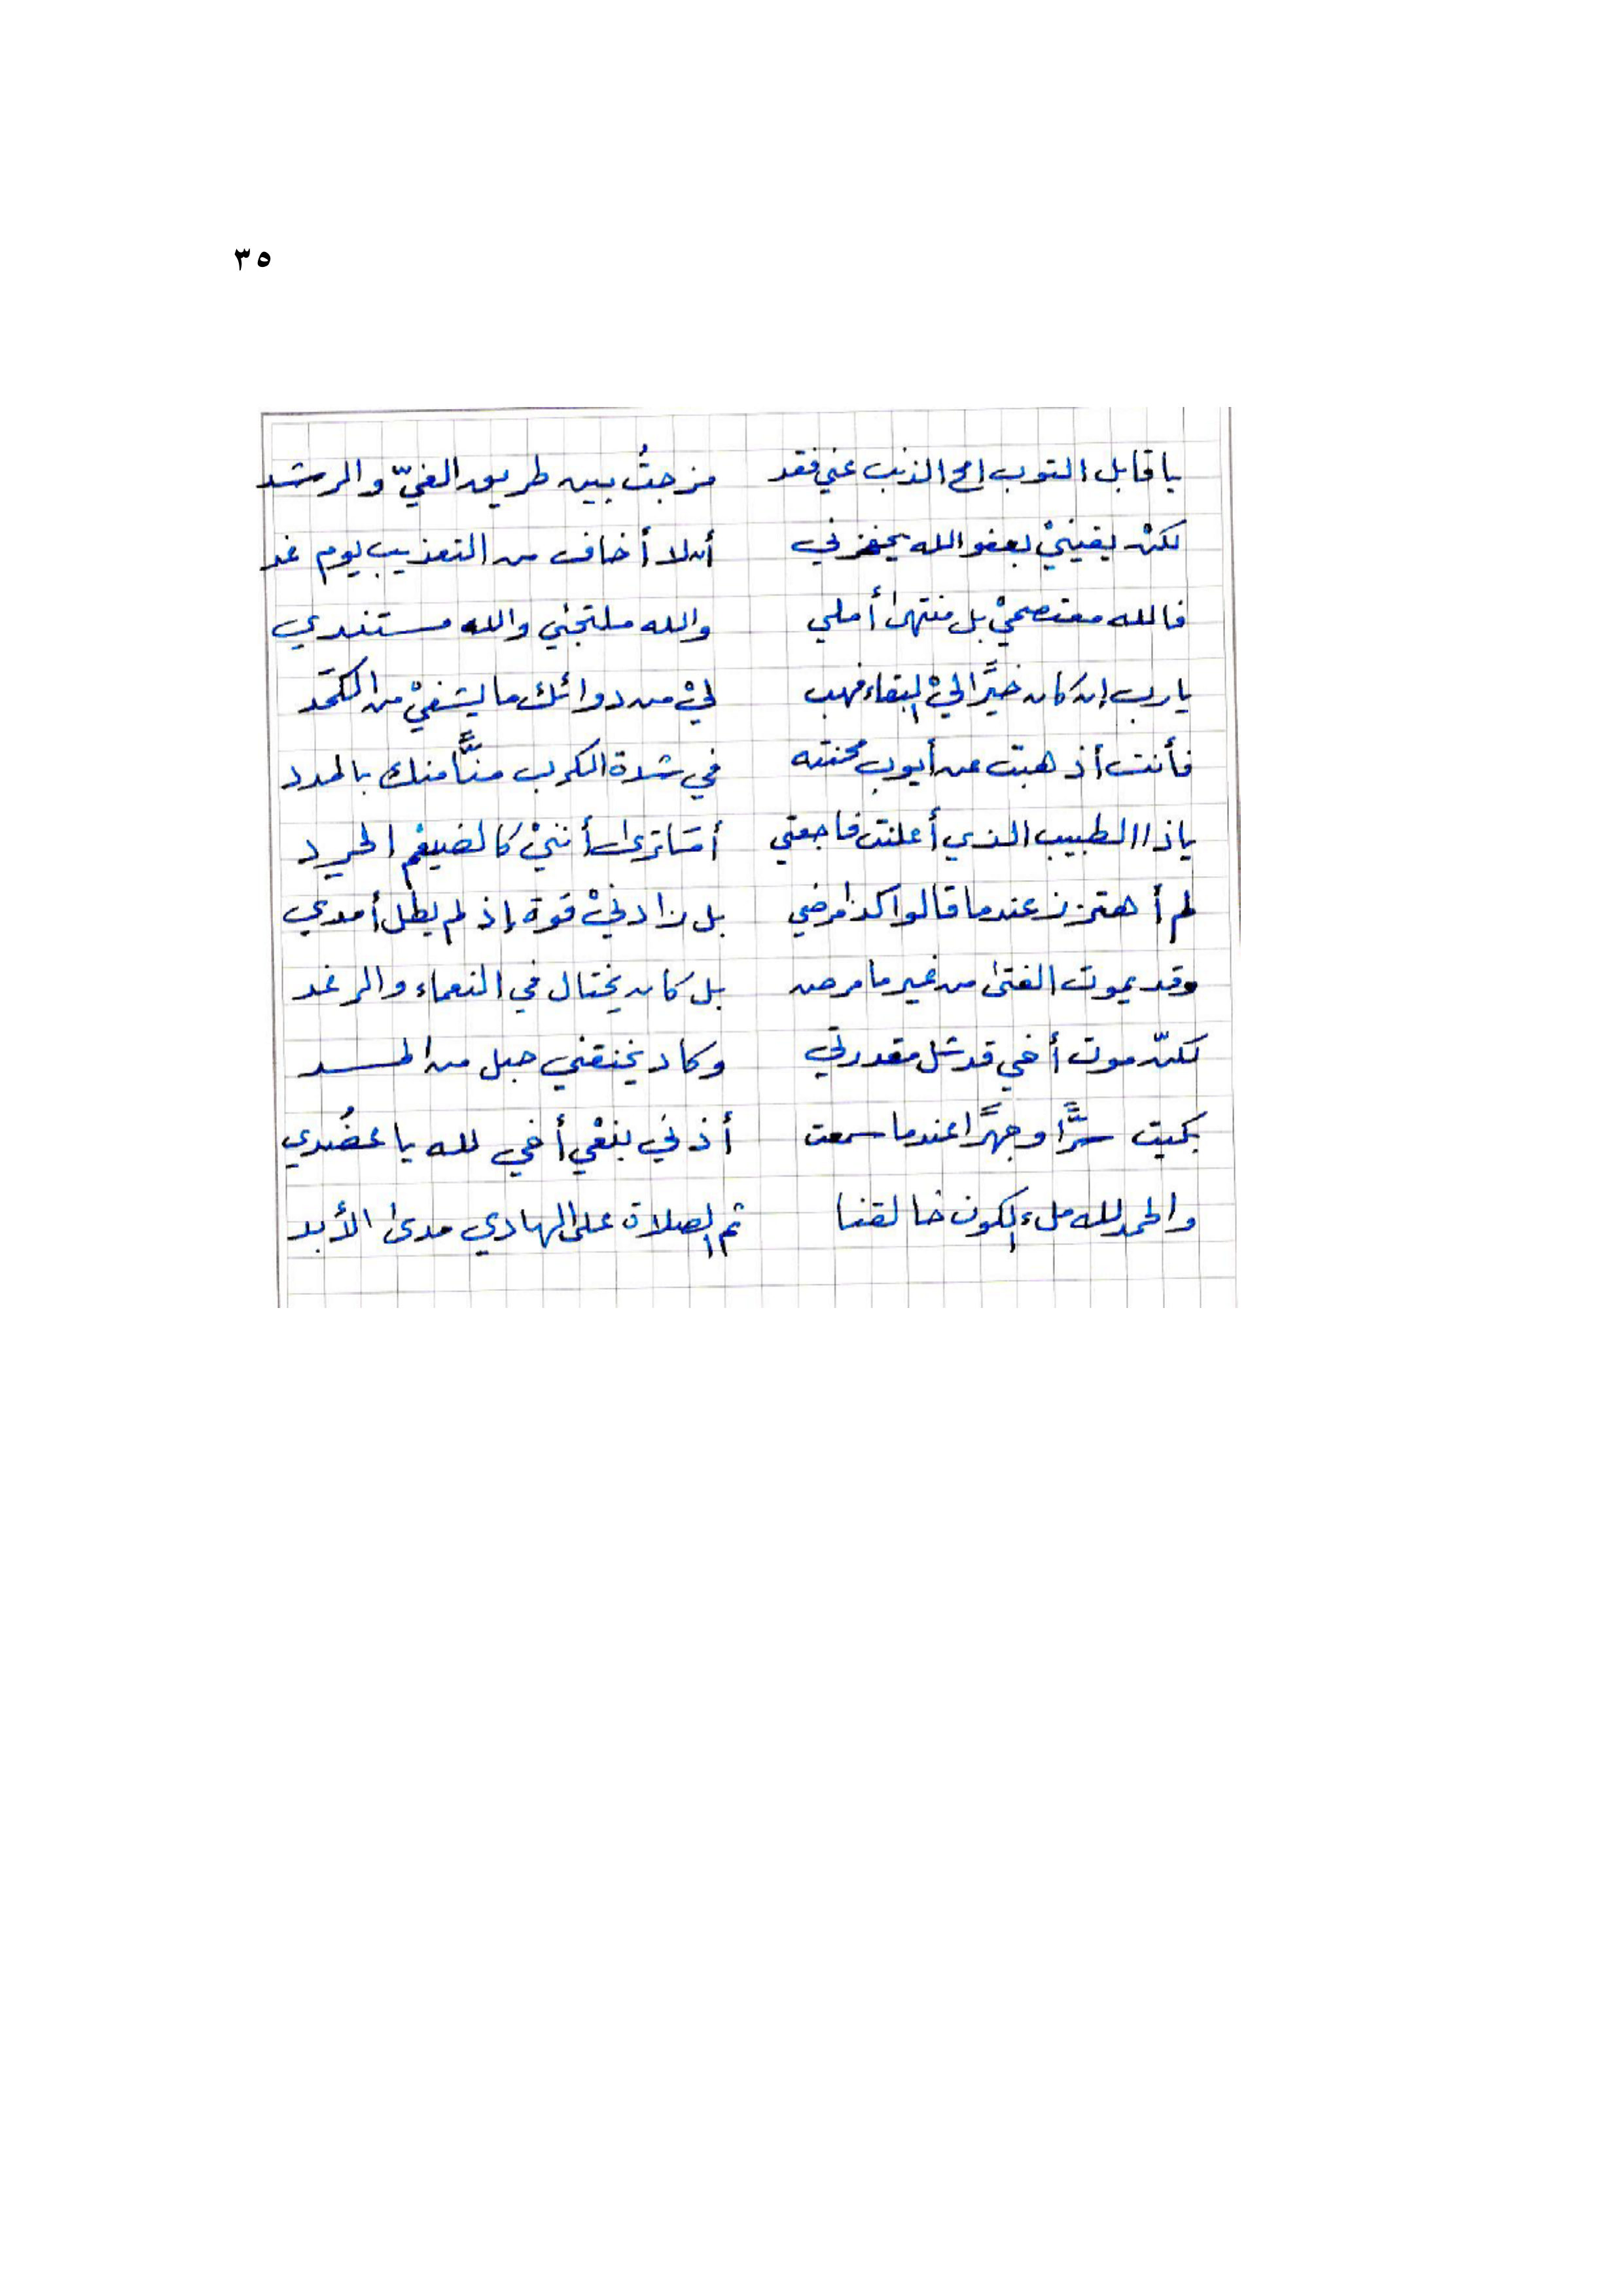 ٣٥
يا قابل التوب امح الذنب عني فقد مزجتُ بين طريق الغيّ والرشد
لكنْ يقينيْ بعفو الله يحفزني أن لا أخاف من التعذيب يوم غد
فالله معتصميْ بل منتهى أملي والله ملتجئي والله مستندي
يا رب إن كان خيرًا ليْ البقاء فهب ليْ من دوائك ما يشفيْ من الكمَد
فأنت أذهبت عن أيوب محنته في شدة الكرب منًّا منك بالمدد
يا ذا الطبيب الذي أعلنت فاجعتي أمَا ترى أننيْ كالضيغم الحرِد
لم أهتزز عندما قالوا كذا مرضي بل زادنيْ قوة إذ لم يطل أمدي
وقد يموت الفتى من غير ما مرض بل كان يختال في النعماء والرغد
لكنّ موت أخي قد شل مقدرتي وكاد يخنقني حبل من المسد
بكيت سرًّا وجهرًا عندما سمعت أذني بنعْي أخي لله يا عضُدي
والحمد لله ملء الكون خالقنا ثم الصلاة على الهادي مدى الأبد